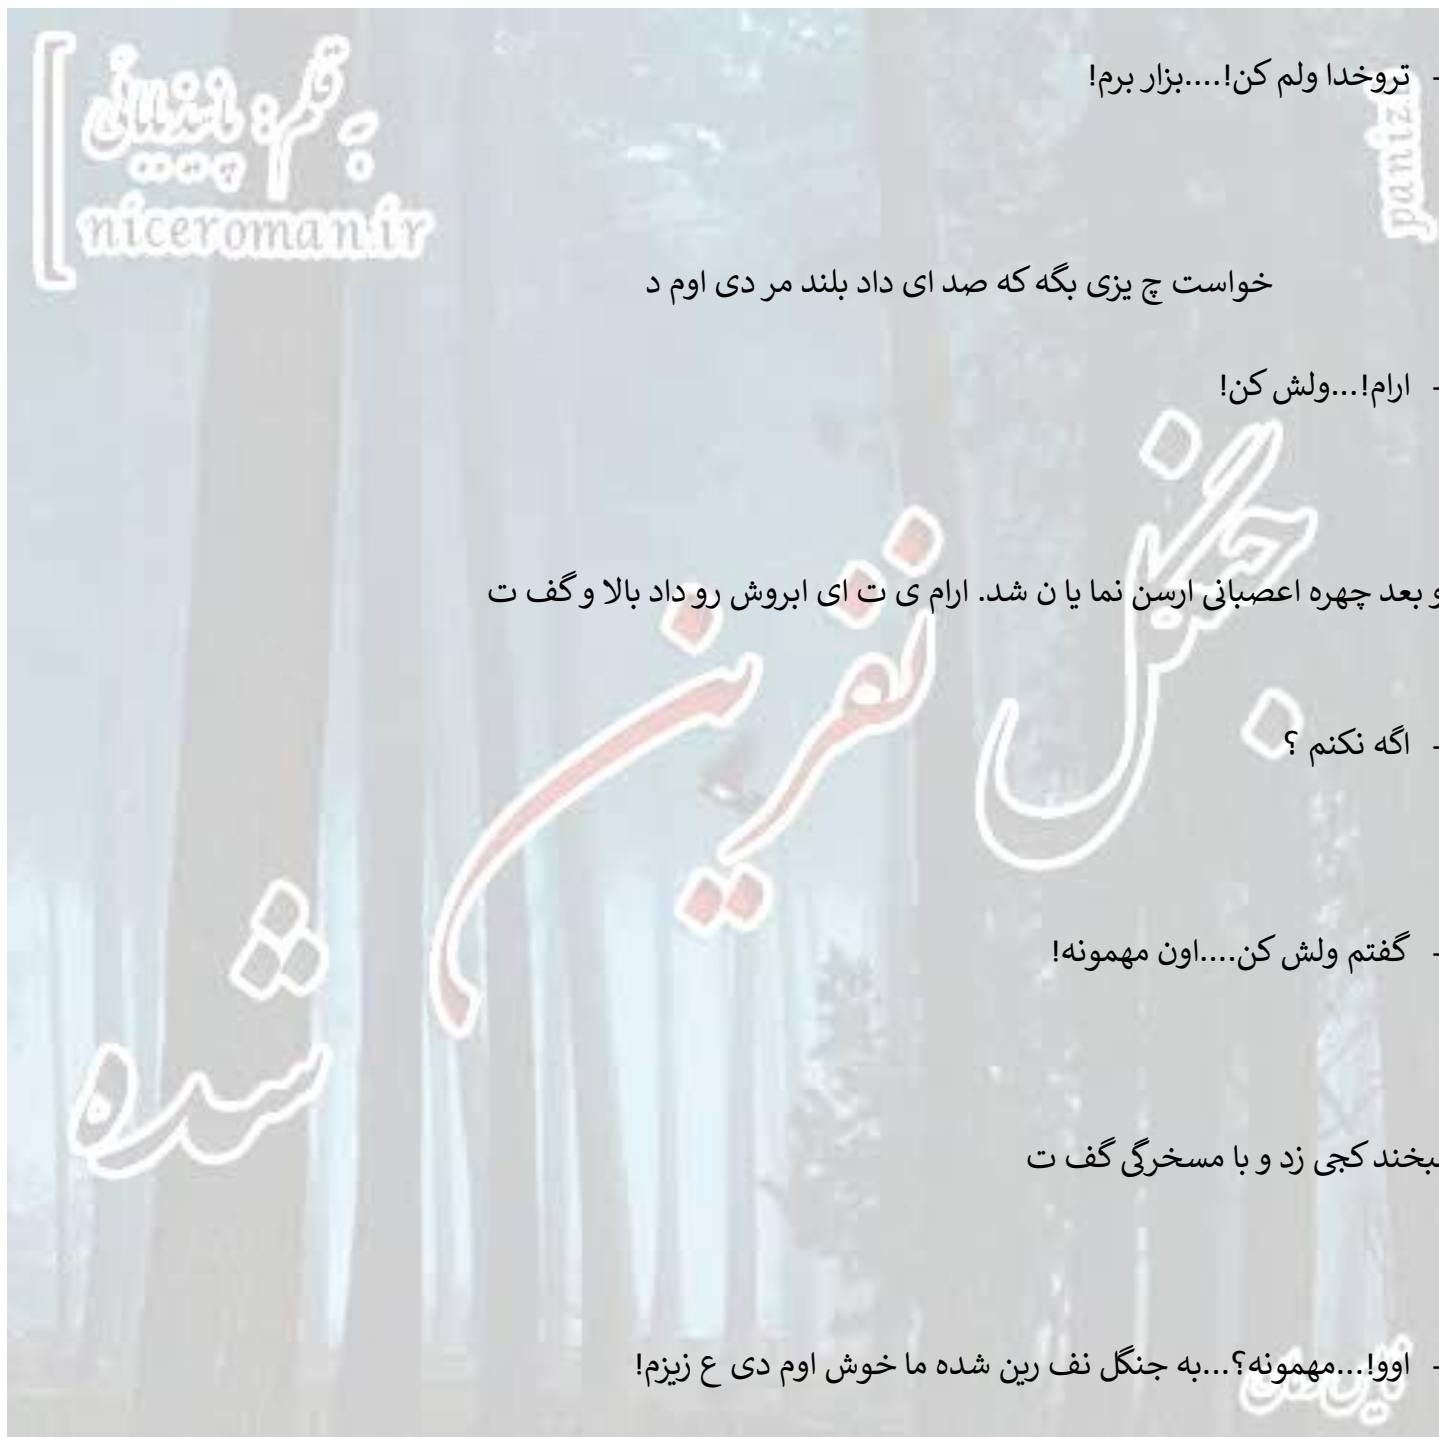 به قلم: پ
niceroman.ir
paniz
- تروخدا ولم کن!....بزار برم!
خواست چ یزی بگه که صد ای داد بلند مر دی اوم د
- ارام!...ولش کن!
و بعد چهره اعصبانی ارسن نما یا ن شد. ارام ی ت ای ابروش رو داد بالا و گف ت
- اگه نکنم ؟
- گفتم ولش کن....اون مهمونه!
لبخند کجی زد و با مسخرگی گف ت
- اوو!...مهمونه؟...به جنگل نف رین شده ما خوش اوم دی ع زیزم!
جنگل نفرین شده